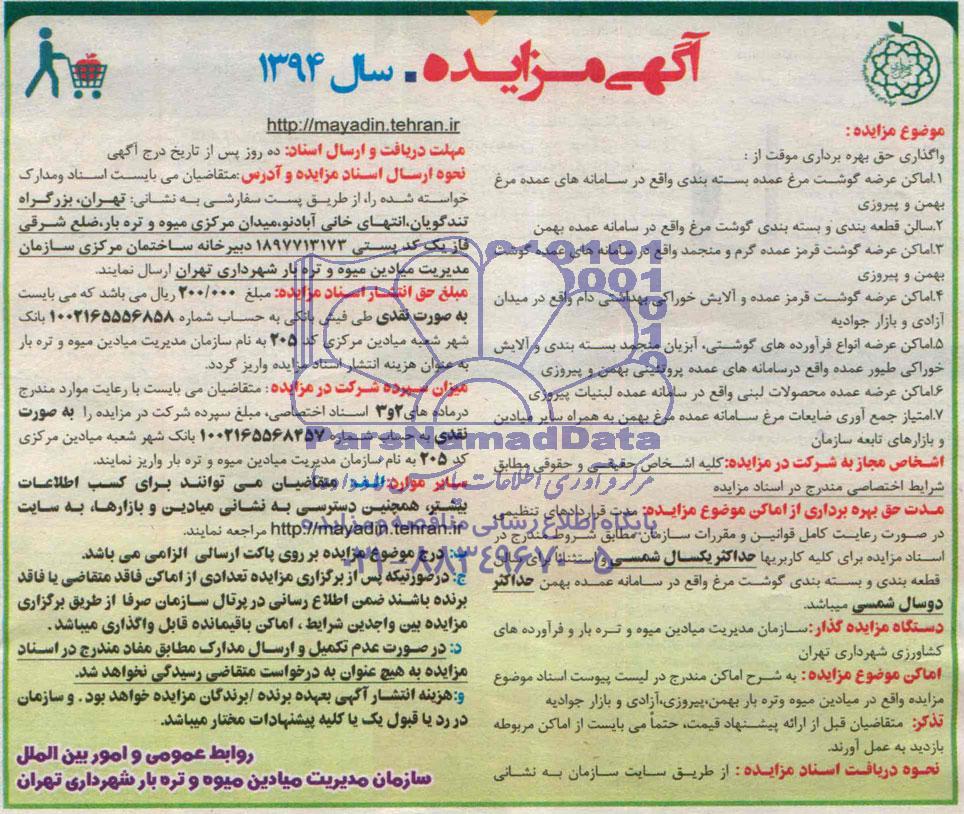 آگهی مزایده . سال ۱۳۹۴
موضوع مزایده :
واگذاری حق بهره برداری موقت از :
۱.اماکن عرضه گوشت مرغ عمده بسته بندی واقع در سامانه های عمده مرغ
بهمن و پیروزی
۲.سالن قطعه بندی و بسته بندی گوشت مرغ واقع در سامانه عمده بهمن
۳.اماکن عرضه گوشت قرمز عمده گرم و منجمد واقع در سامانه های عمده گوشت
بهمن و پیروزی
۴.اماکن عرضه گوشت قرمز عمده و آلایش خوراکی بهداشتی دام واقع در میدان
آزادی و بازار جوادیه
۵.اماکن عرضه انواع فرآورده های گوشتی، آبزیان منجمد بسته بندی و آلایش
خوراکی طیور عمده واقع درسامانه های عمده پروتئینی بهمن و پیروزی
۶.اماکن عرضه عمده محصولات لبنی واقع در سامانه عمده لبنیات پیروزی
۷.امتیاز جمع آوری ضایعات مرغ سامانه عمده مرغ بهمن به همراه سایر میادین
و بازارهای تابعه سازمان
اشخاص مجاز به شرکت در مزایده:کلیه اشخاص حقیقی و حقوقی مطابق
شرایط اختصاصی مندرج در اسناد مزایده
مدت حق بهره برداری از اماکن موضوع مزایده: مدت قراردادهای تنظیمی
در صورت رعایت کامل قوانین و مقررات سازمان مطابق شروط مندرج در
اسناد مزایده برای کلیه کاربریها حداکثر یکسال شمسی و
قطعه بندی و بسته بندی گوشت مرغ واقع در سامانه عمده بهمن حداکثر
دوسال شمسی میباشد.
دستگاه مزایده گذار:سازمان مدیریت میادین میوه و تره بار و فرآورده های
کشاورزی شهرداری تهران
اماکن موضوع مزایده: به شرح اماکن مندرج در لیست پیوست اسناد موضوع
مزایده واقع در میادین میوه وتره بار بهمن،پیروزی،آزادی و بازار جوادیه
تذکر: متقاضیان قبل از ارائه پیشنهاد قیمت، حتماً می بایست از اماکن مربوطه
بازدید به عمل آورند.
نحوه دریافت اسناد مزایده : از طریق سایت سازمان به نشانی
http://mayadin.tehran.ir
مهلت دریافت و ارسال اسناد: ده روز پس از تاریخ درج آگهی
نحوه ارسال اسناد مزایده و آدرس:متقاضیان می بایست اسناد ومدارک
خواسته شده را، از طریق پست سفارشی به نشانی: تهران، بزرگراه
تندگویان،انتهای خانی آبادنو،میدان مرکزی میوه و تره بار،ضلع شرقی
فاز یک کد پستی ۱۸۹۷۷۱۳۱۷۳ دبیرخانه ساختمان مرکزی سازمان
مدیریت میادین میوه و تره بار شهرداری تهران ارسال نمایند.
مبلغ حق انتشار اسناد مزایده: مبلغ ۲۰۰/۰۰۰ ریال می باشد که می بایست
به صورت نقدی طی فیش بانکی به حساب شماره ۱۰۰۲۱۶۵۵۵۶۸۵۸ بانک
شهر شعبه میادین مرکزی کد ۲۰۵ به نام سازمان مدیریت میادین میوه و تره بار
به عنوان هزینه انتشار اسناد مزایده واریز گردد.
میزان سپرده شرکت در مزایده : متقاضیان می بایست با رعایت موارد مندرج
درماده های ۲و۳ اسناد اختصاصی، مبلغ سپرده شرکت در مزایده را به صورت
نقدی به حساب شماره ۱۰۰۲۱۶۵۵۶۸۴۵۷ بانک شهر شعبه میادین مرکزی
کد ۲۰۵ به نام سازمان مدیریت میادین میوه و تره بار واریز نمایند.
سایر موارد:الف: متقاضیان می توانند برای کسب اطلاعات
بیشتر، همچنین دسترسی به نشانی میادین و بازارها، به سایت
http://mayadin.tehran.ir مراجعه نمایند.
ب: درج موضوع مزایده بر روی پاکت ارسالی الزامی می باشد.
ج: درصورتیکه پس از برگزاری مزایده تعدادی از اماکن فاقد متقاضی یا فاقد
برنده باشند ضمن اطلاع رسانی در پرتال سازمان صرفا از طریق برگزاری
مزایده بین واجدین شرایط ، اماکن باقیمانده قابل واگذاری میباشد .
د: در صورت عدم تکمیل و ارسال مدارک مطابق مفاد مندرج در اسناد
مزایده به هیچ عنوان به درخواست متقاضی رسیدگی نخواهد شد.
و:هزینه انتشار آگهی بعهده برنده /برندگان مزایده خواهد بود . و سازمان
در رد یا قبول یک یا کلیه پیشنهادات مختار میباشد.
روابط عمومی و امور بین الملل
سازمان مدیریت میادین میوه و تره بار شهرداری تهران
ParsNamadData
پایگاه اطلاع رسانی مناقصه و مزایده
۰۲۱-۸۸۳۴۹۶۷۰-۵